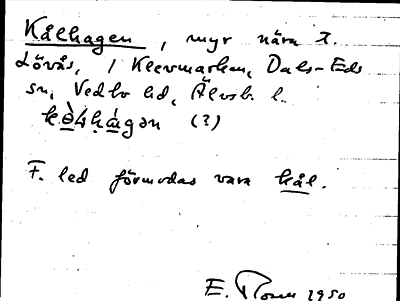 Kålhagen, myr nära T.
Lövås, i Klevmarken, Dals-Eds
sn, Vedbo hd, Älvsb. l.
kə̀ḷhágən (?)
F. led förmodas vara kål.
E. Rosell 1950